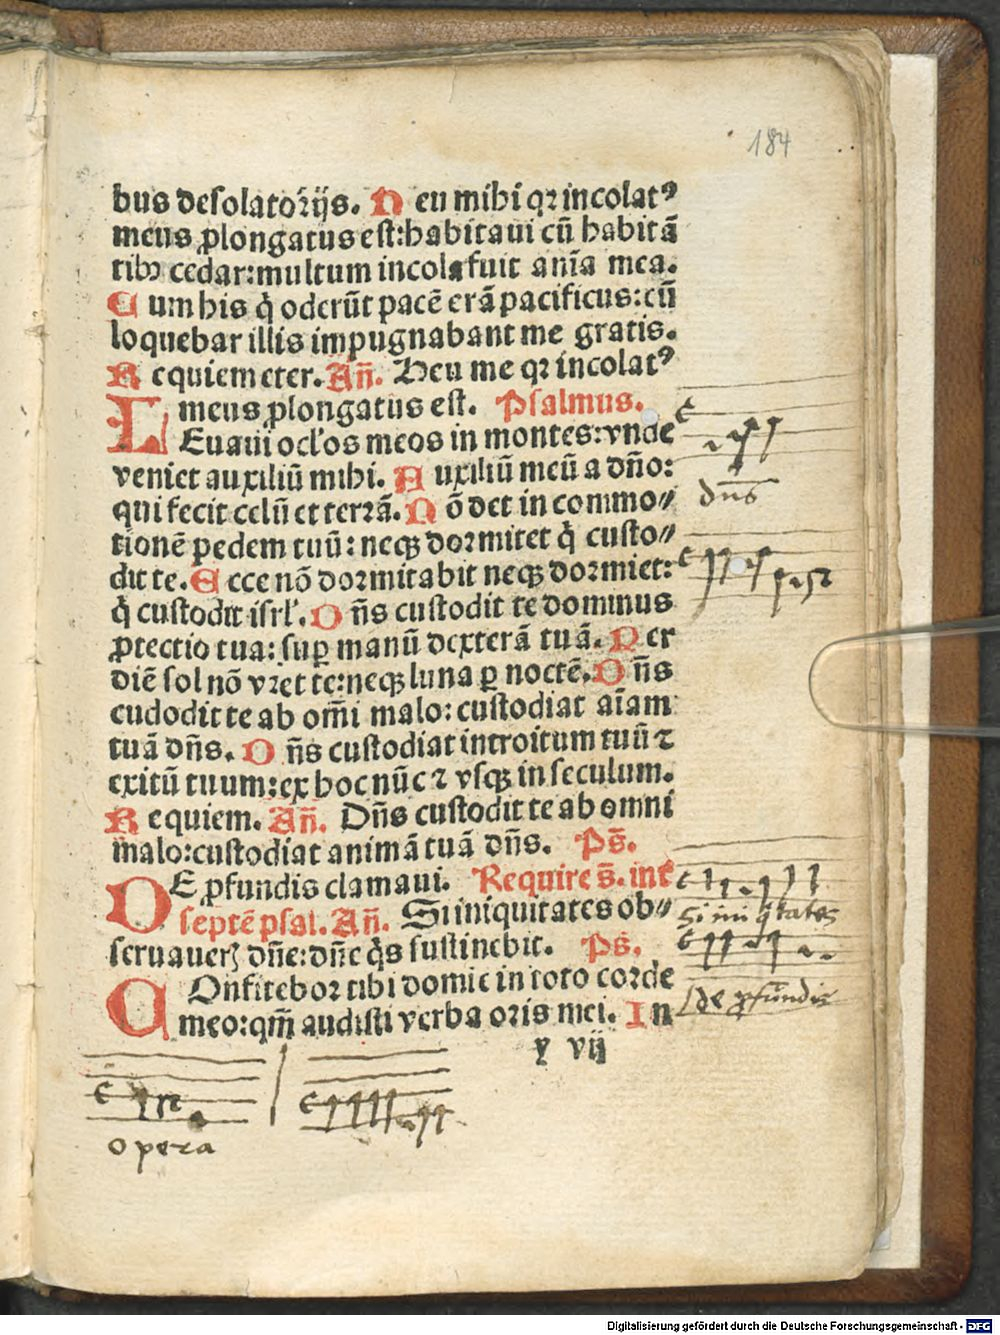 184
bus desolatoꝛijs. N eu mihi qꝛ incolatꝰ
meus ꝓlongatus est: habitaui cū habitā
tibꝫ cedar: multum incola fuit anīa mea.
C um his q̄ oderūt pacē erā pacificus: cū
loquebar illis impugnabant me gratis.
R equiem eter. Añ. Heu me qꝛ incolatꝰ
meus ꝓlongatus est. Psalmus.
LEuaui ocl'os meos in montes: vnde
veniet auxiliū mihi. A uxiliū meū a dño:
qui fecit celū et terrā. N ō det in commo⸗
tionē pedem tuū: neqꝫ doꝛmitet q̄ custo⸗
dit te. E cce nō doꝛmitabit neqꝫ doꝛmiet:
q̄ custodit isrl'. D ñs custodit te dominus
ꝓtectio tua: suꝑ manū dexterā tuā. P er
diē sol nō vꝛet te: neqꝫ luna ꝑ noctē. D ñs
cudodit te ab om̄i malo: custodiat aīam
tuā dñs. D ñs custodiat introitum tuū ⁊
exitū tuum: ex hoc nūc ⁊ vsqꝫ in seculum.
R equiem. Añ. Dñs custodit te ab omni
malo: custodiat animā tuā dñs. Ps̄.
DE ꝓfundis clamaui. Require s̄. int̄
septē psal. Añ. Si iniquitates ob⸗
seruauerꝫ dñe: dñe q̄s sustinebit. Ps̄.
COnfitebor tibi domīe in toto corde
meo: qm̄ audisti verba oꝛis mei. In
y vij
dn̄s
Si iniq̄tates
De ꝓfundis
Opera
Digitalisierung gefördert durch die Deutsche Forschungsgemeinschaft - DFG